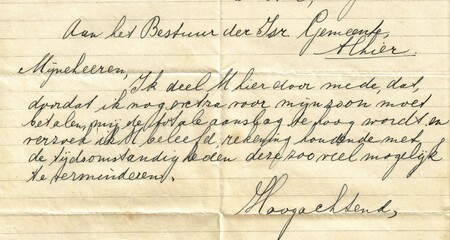 Aan het Bestuur der Isr. Gemeente,
Alhier.
Mijneheeren,
Ik deel U hierdoor mede, dat,
doordat ik nog extra voor mijn zoon moet
betalen, mij de totale aanslag te hoog wordt, en
verzoek ik U beleefd, rekening houdende met
de tijdsomstandigheden deze zoo veel mogelijk
te verminderen.
Hoogachtend,